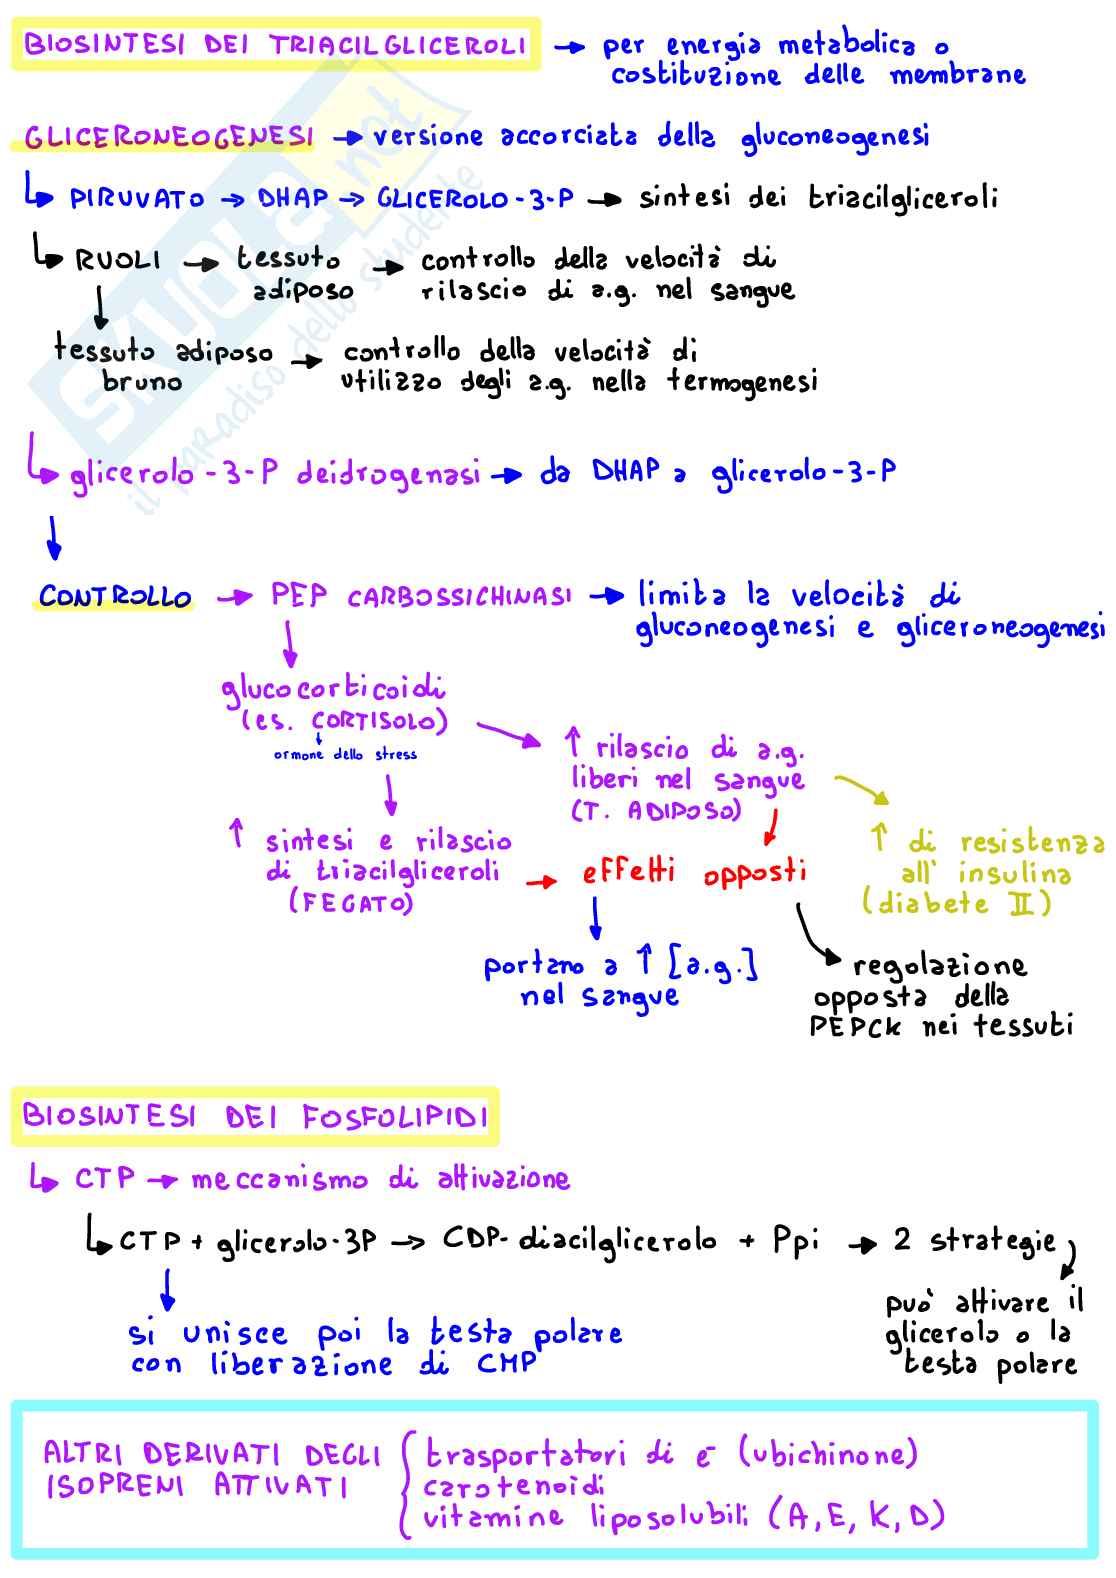 BIOSINTESI DEI TRIACILGLICEROLI → per energia metabolica o
costituzione delle membrane
GLICERONEOGENESI → versione accorciata della gluconeogenesi
↳ PIRUVATO → DHAP → GLICEROLO-3-P → sintesi dei triacilgliceroli
↳ RUOLI → tessuto adiposo → controllo della velocità di
rilascio di a.g. nel sangue
tessuto adiposo bruno → controllo della velocità di
utilizzo degli a.g. nella termogenesi
↳ glicerolo-3-P deidrogenasi → da DHAP a glicerolo-3-P
CONTROLLO → PEP CARBOSSICHINASI → limita la velocità di
gluconeogenesi e gliceroneogenesi
glucocorticoidi
(es. CORTISOLO)
ormone dello stress
↑ rilascio di a.g.
liberi nel sangue
(T. ADIPOSO)
↑ sintesi e rilascio
di triacilgliceroli
(FEGATO)
→ effetti opposti
↑ di resistenza
all' insulina
(diabete II)
portano a ↑ [a.g.]
nel sangue
regolazione
opposta della
PEPCK nei tessuti
BIOSINTESI DEI FOSFOLIPIDI
↳ CTP → meccanismo di attivazione
↳ CTP + glicerolo-3P → CDP-diacilglicerolo + Ppi → 2 strategie
può attivare il
glicerolo o la
testa polare
si unisce poi la testa polare
con liberazione di CMP
ALTRI DERIVATI DEGLI
ISOPRENI ATTIVATI
trasportatori di e⁻ (ubichinone)
carotenoidi
vitamine liposolubili (A, E, K, D)
SKUOLA.net
il paradiso dello studente